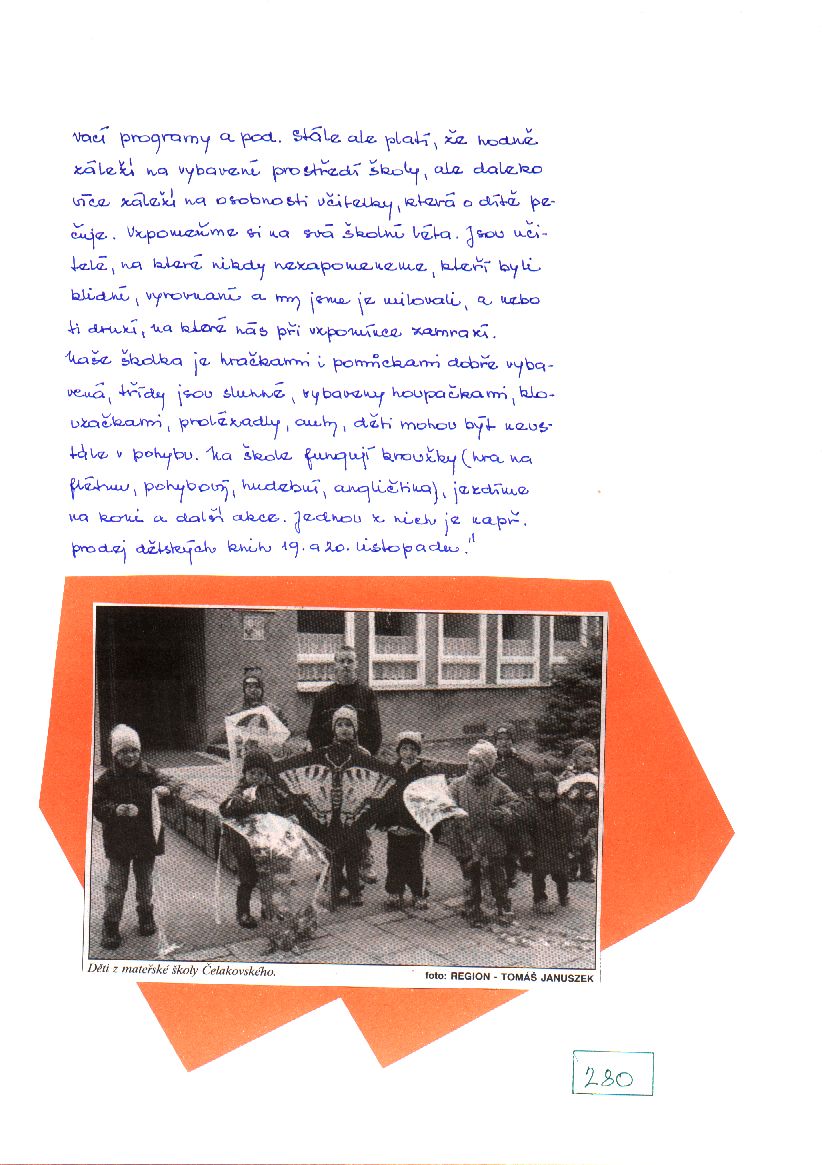 vací programy a pod. Stále ale platí, že hodně
záleží na vybavení prostředí školy, ale daleko
více záleží na osobnosti učitelky, která o dítě pe-
čuje. Vzpomeňme si na svá školní léta. Jsou uči-
telé, na které nikdy nezapomeneme, kteří byli
klidní, vyrovnaní a my jsme je milovali, a nebo
ti druzí, na které nás při vzpomínce zamrazí.
Naše školka je hračkami i pomůckami dobře vyba-
vená, třídy jsou slunné, vybaveny houpačkami, klo-
uzačkami, prolézadly, auty, děti mohou být neus-
tále v pohybu. Na škole fungují kroužky (hra na
flétnu, pohybový, hudební, angličtina), jezdíme
na koni a další akce. Jednou z nich je např.
prodej dětských knih 19. a 20. listopadu."
Děti z mateřské školy Čelakovského.
foto: REGION - TOMÁŠ JANUSZEK
280